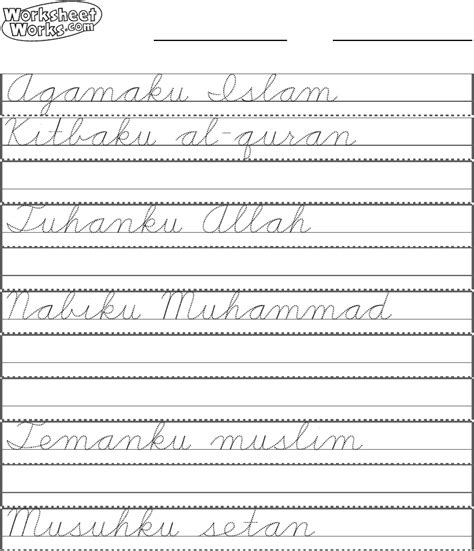 Worksheet
Works.com
Agamaku Islam
Kitbaku al-quran
Tuhanku Allah
Nabiku Muhammad
Temanku muslim
Musuhku setan